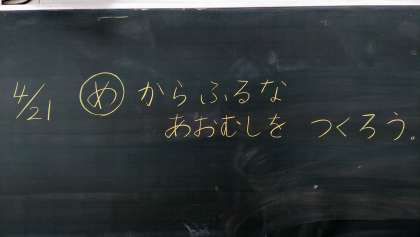 4/21 め からふるな
あおむしを つくろう。